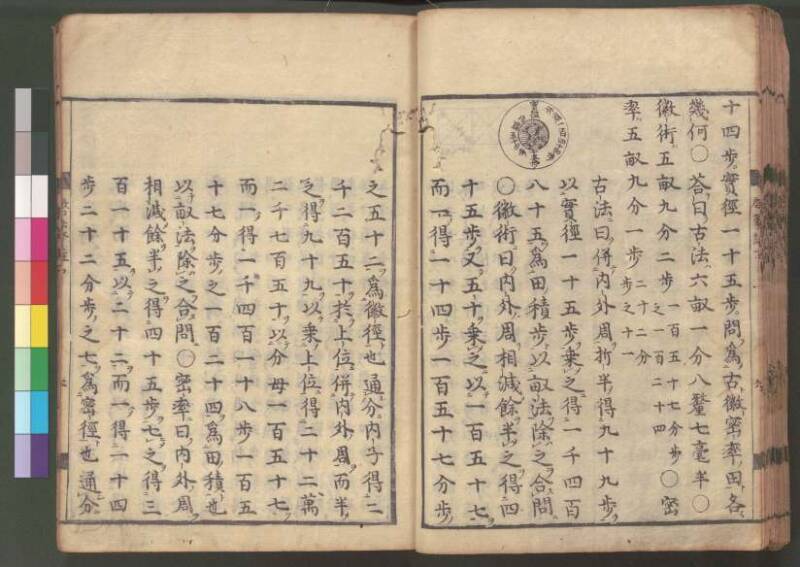 十四步實徑一十五步問爲古徽密率田各
幾何〇荅曰古法六畝一分八釐七毫半〇
徽術五畝九分二步一百五十七分步之一百二十四〇密
率五畝九分一步二十二分步之十一
古法曰併內外周折半得九十九步
以實徑一十五步乘之得一千四百
八十五爲田積步以畝法除之合問
〇徽術曰內外周相減餘半之得四
十五步又五十乘之以一百五十七
而一得一十四步一百五十七分步
之五十二爲徽徑也通分內子得二
千二百五十於上位併內外周而半
之得九十九以乘上位得二十二萬
二千七百五十以分母一百五十七
而一得一千四百一十八步一百五
十七分步之一百二十四爲田積也
以畝法除之合問〇密率曰內外周
相減餘半之得四十五步七之得三
百一十五以二十二而一得一十四
步二十二分步之七爲密徑也通分